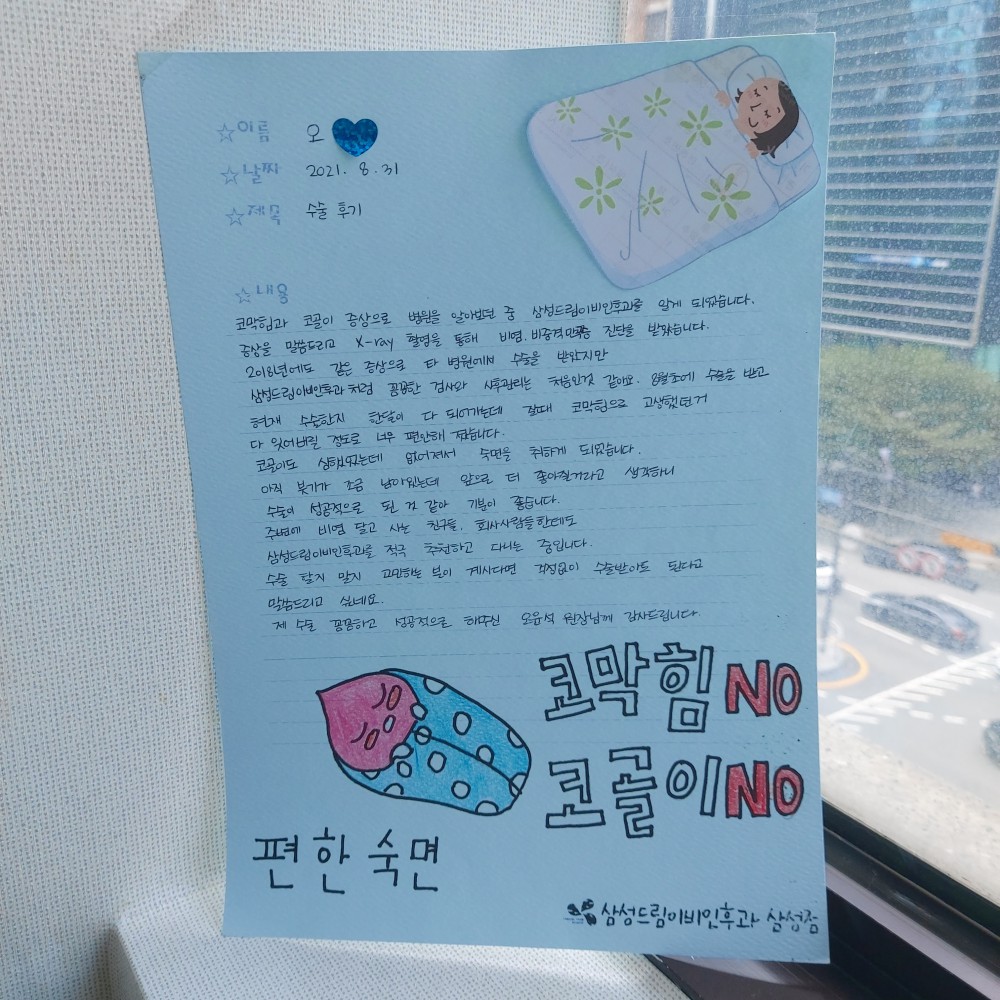 ☆이름 오
☆날짜 2021. 8. 31
☆제목 수술 후기
☆내용
코막힘과 코골이 증상으로 병원을 알아보던 중 삼성드림이비인후과를 알게 되었습니다.
증상을 말씀드리고 X-ray 촬영을 통해 비염, 비중격만곡증 진단을 받았습니다.
2018년에도 같은 증상으로 타 병원에서 수술을 받았지만
삼성드림이비인후과처럼 꼼꼼한 검사와 사후관리는 처음인것 같아요. 8월초에 수술을 받고
현재 수술한지 한달이 다 되어가는데 잘때 코막힘으로 고생했던거
다 잊어버릴 정도로 너무 편안해 졌습니다.
코골이도 심했었는데 없어져서 숙면을 취하게 되었습니다.
아직 붓기가 조금 남아있는데 앞으로 더 좋아질거라고 생각하니
수술이 성공적으로 된 것 같아 기분이 좋습니다.
주변에 비염 달고 사는 친구들, 회사사람들한테도
삼성드림이비인후과를 적극 추천하고 다니는 중입니다.
수술 할지 말지 고민하는 분이 계시다면 걱정없이 수술받아도 된다고
말씀드리고 싶네요.
제 수술 꼼꼼하고 성공적으로 해주신 오윤석 원장님께 감사드립니다
코막힘 NO
코골이 NO
편한숙면
삼성드림이비인후과 삼성점